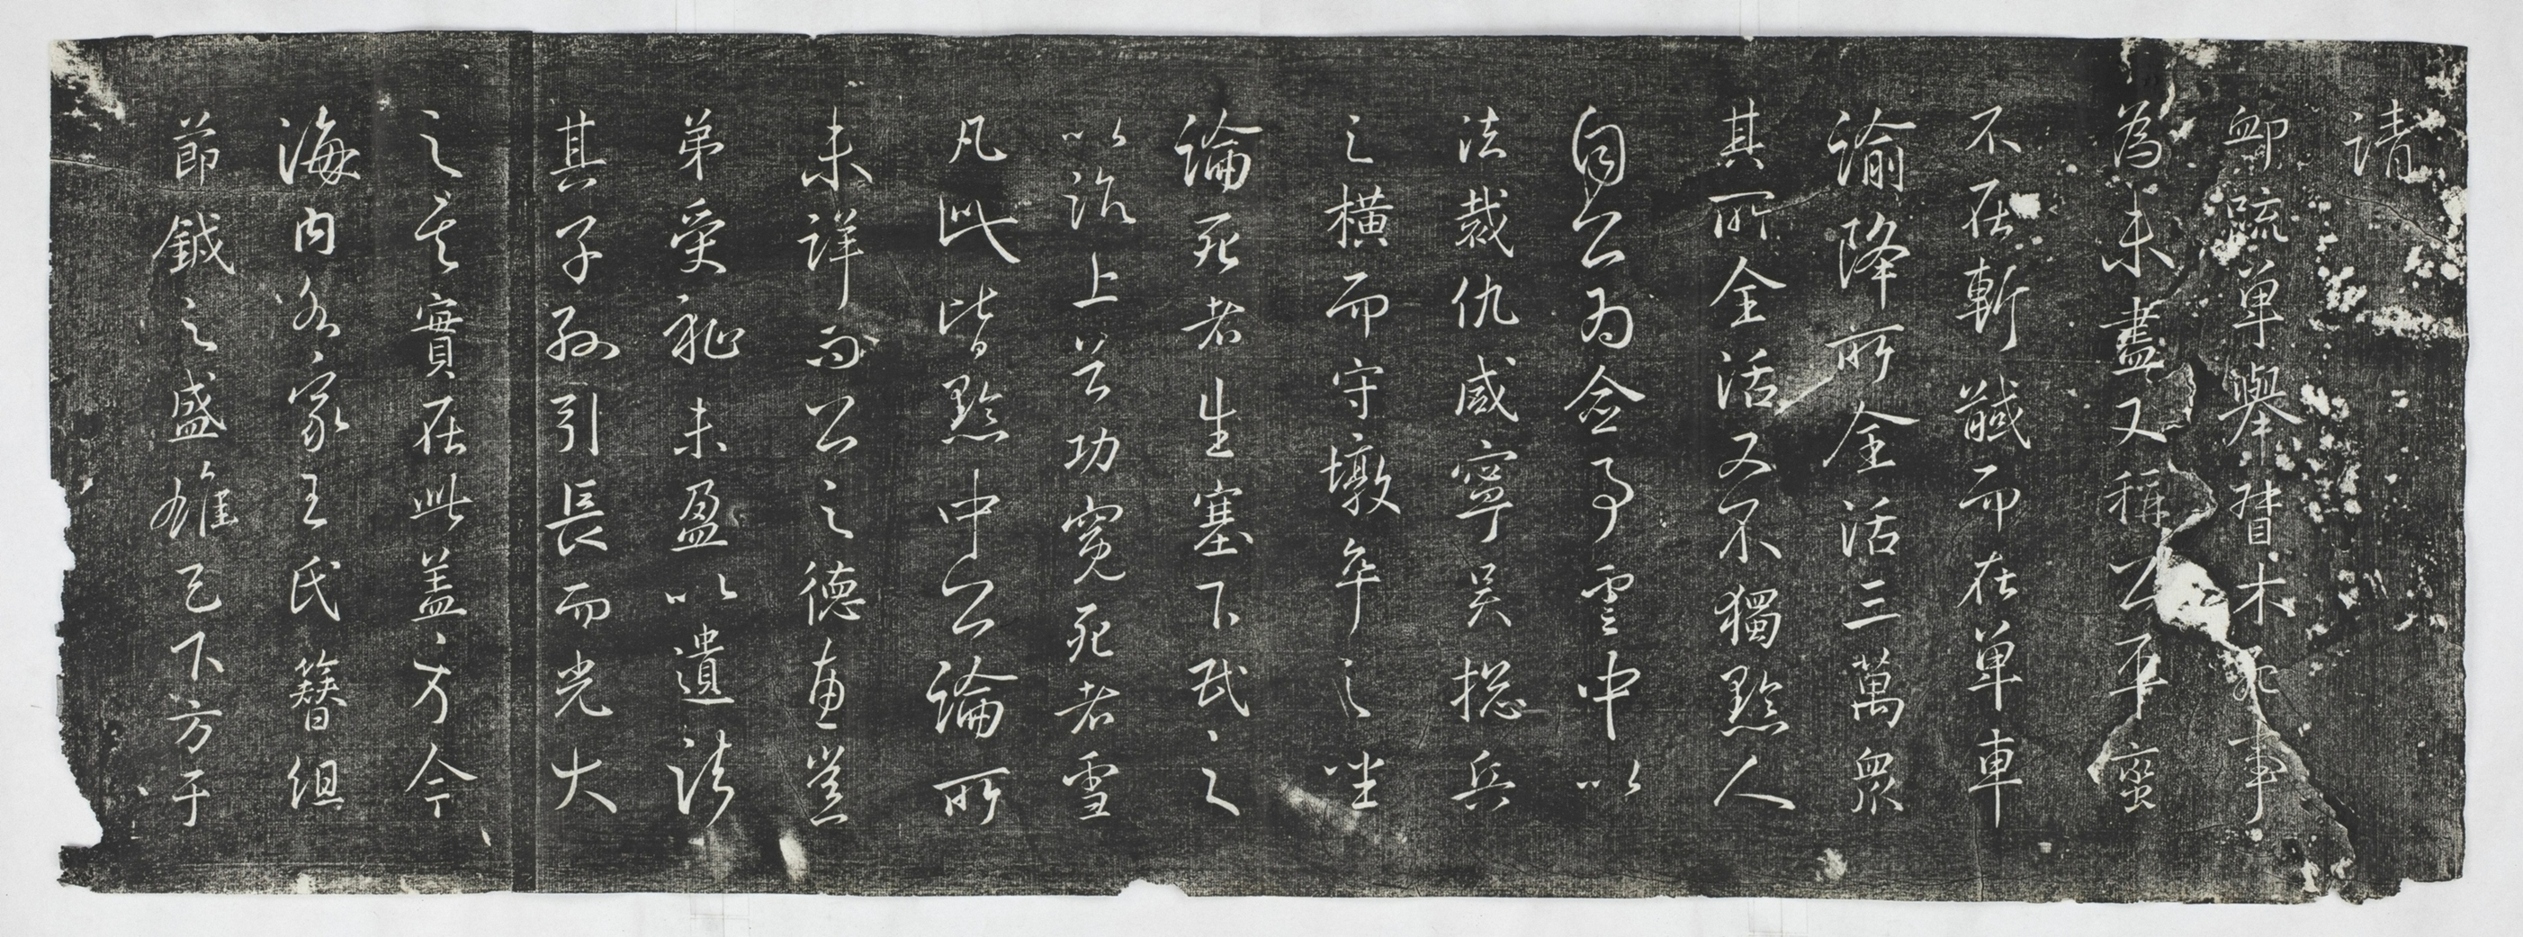 請
卹疏單舉督木死事
為未盡又稱公平蠻
不在斬馘而在單車
諭降所全活三萬衆
其所全活又不獨黔人
自公為僉事雲中以
法裁仇咸寧吳總兵
之橫而守墩卒之坐
論死者生塞下民之
以詒上首功冤死者雪
凡此皆黔中公論所
未詳而公之德
弟受祉未盈以遺諸
其子孫引長而光大
之其實在此蓋方今
海內名家王氏簪組
節鉞之盛雄天下方于